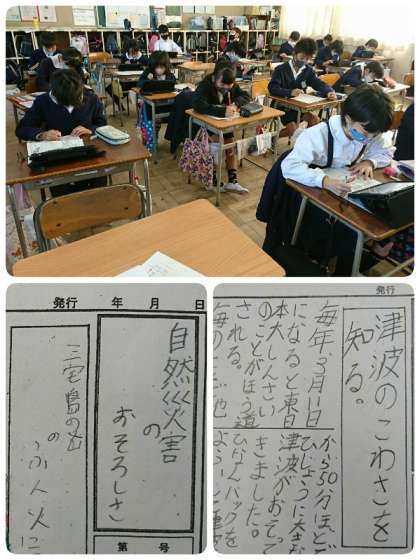 発行 年 月 日
自然災害
の
おそろしさ
三宅島の
の
ふん火に
第 号
発行
津波のこわさを
知る。
毎年3月11日
になると東日
本大しんさい
のことがほう道
される。
から50分ほど
ひじょうに大き
津波がおそって
きました。
ひなんバックを